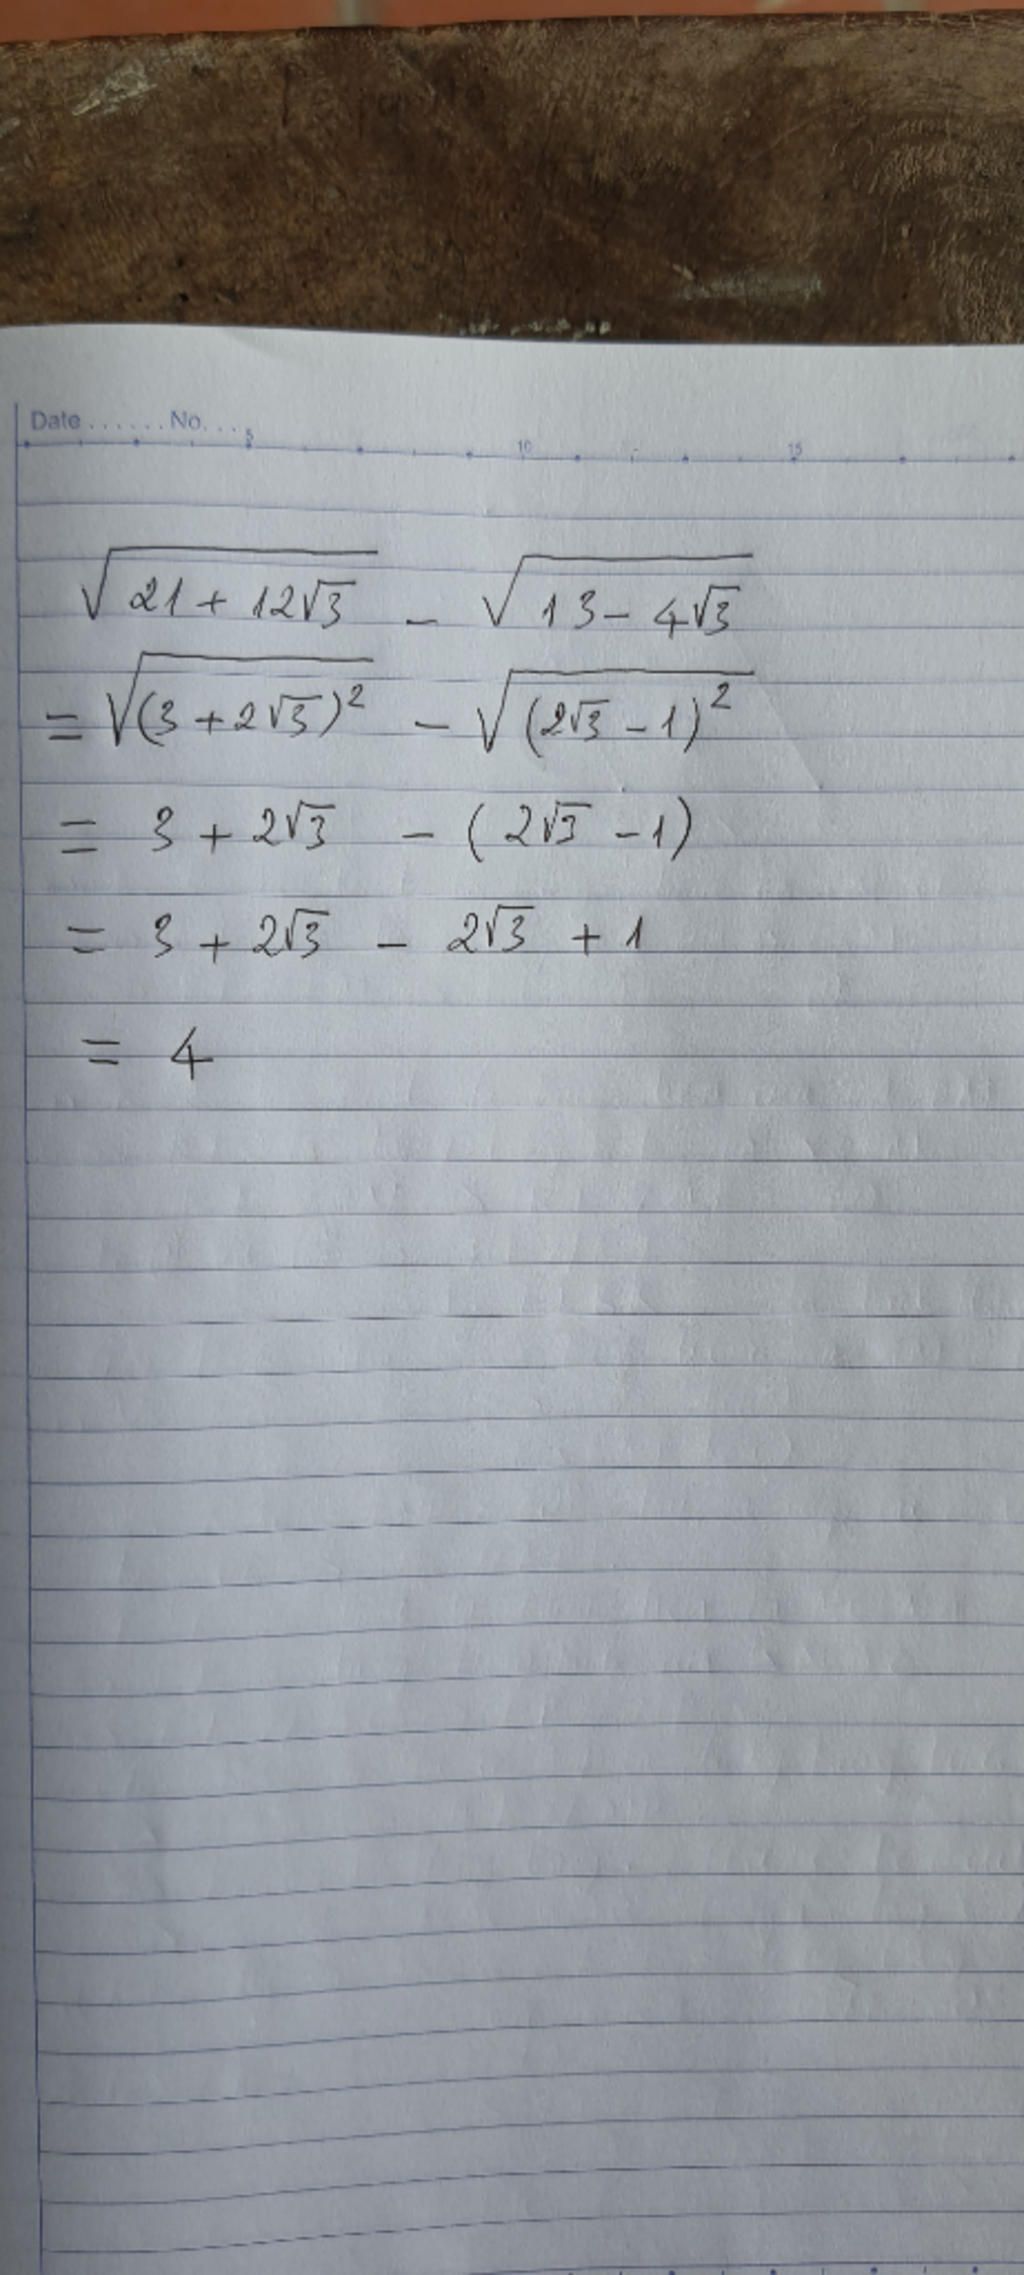 Date.......No....
5 10 15
√(21 + 12√3) - √(13 - 4√3)
= √((3 + 2√3)²) - √((2√3 - 1)²)
= 3 + 2√3 - (2√3 - 1)
= 3 + 2√3 - 2√3 + 1
= 4